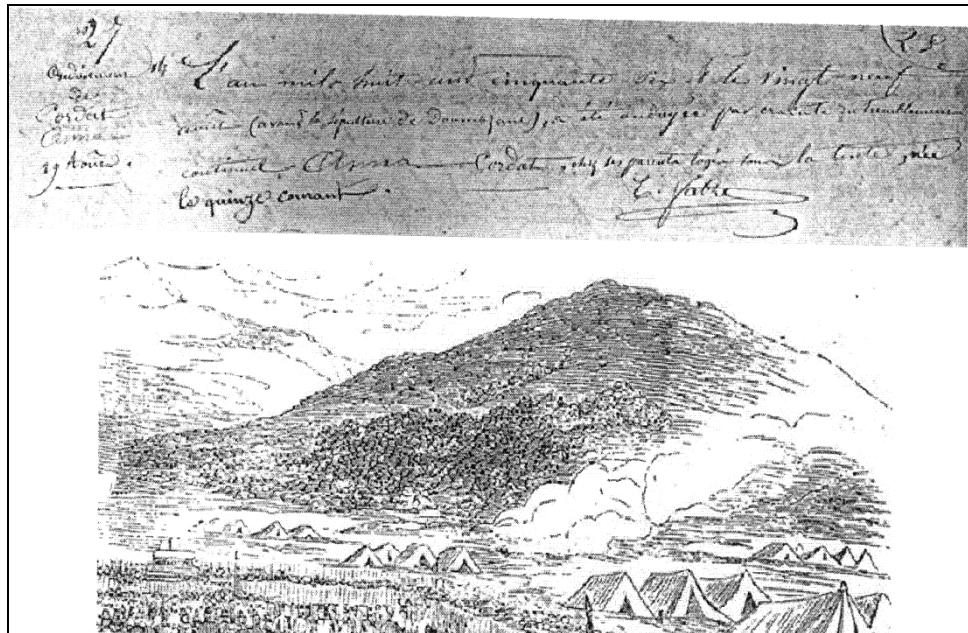 27
28
Ondoiement
de
Cordat
Anna
29 Août.
L'an mil huit cent cinquante six & le vingt neuf
août (avant la sépulture de ), a été ondoyée par crainte du tremblement
continuel Anna Cordat, chez ses parents logés sous la tente, née
le quinze courant.
E. Fabre